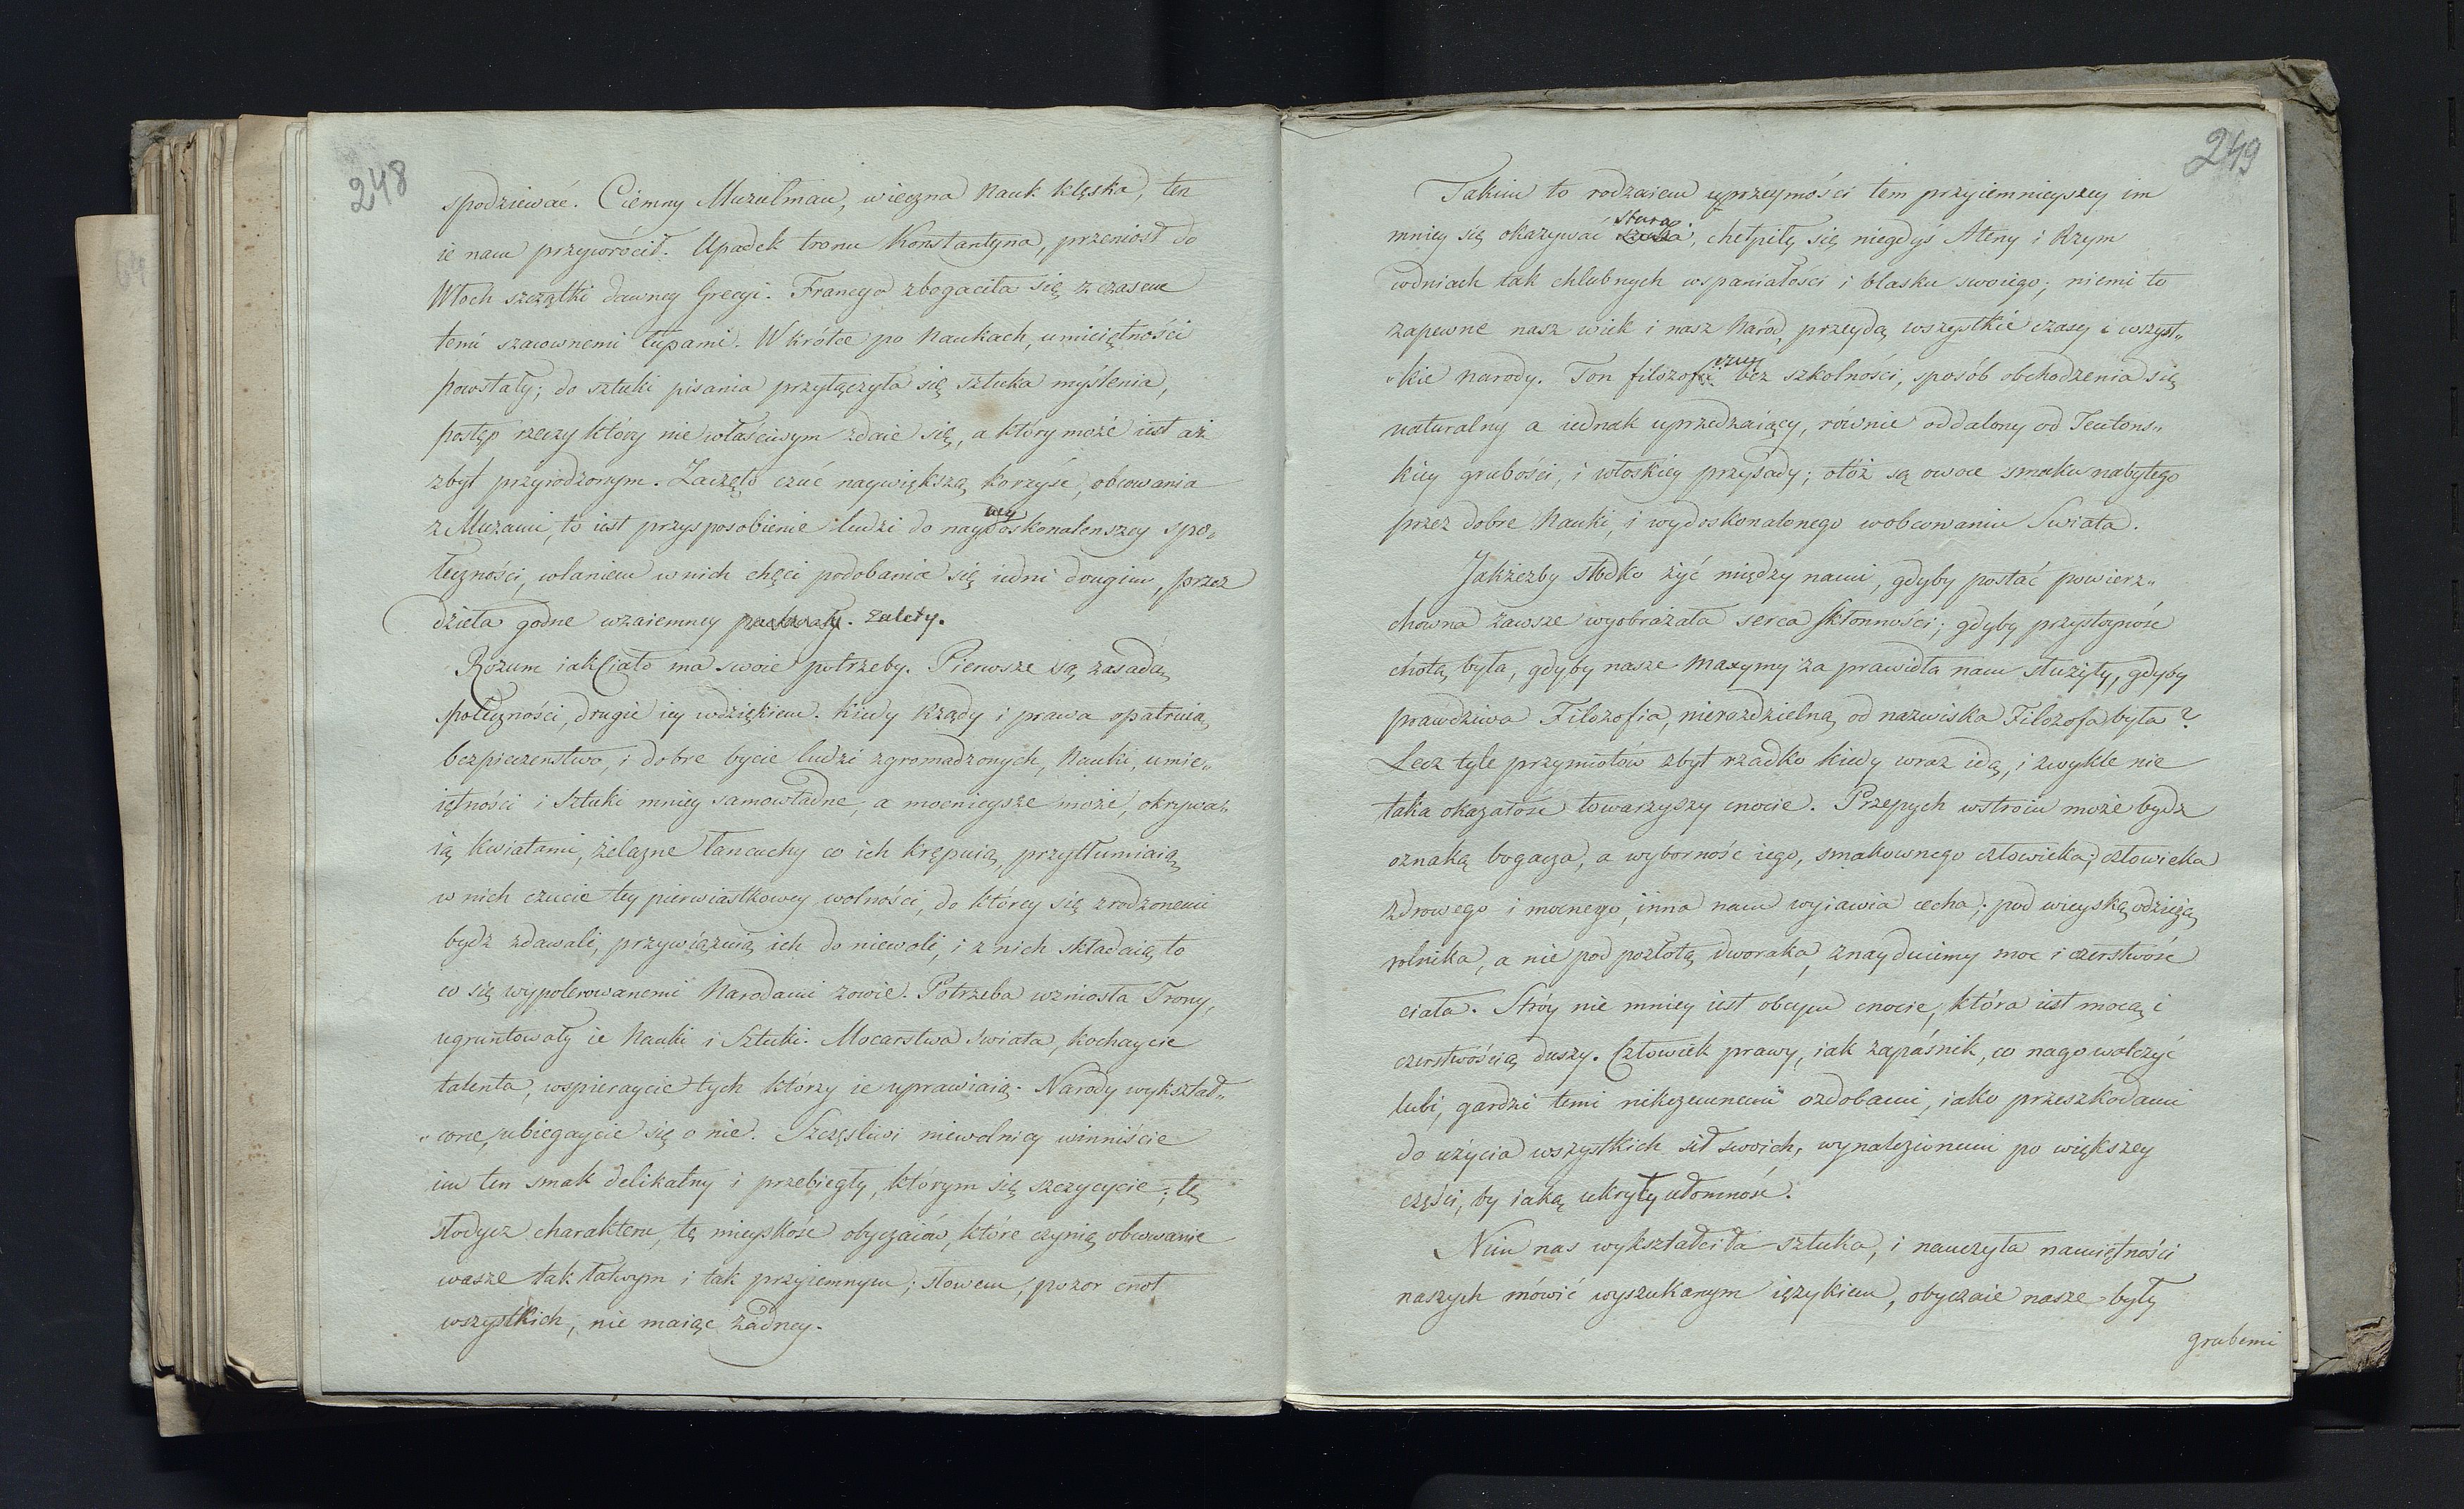 248
spodziewać. Ciemny Muzułman, wieczna Nauk klęska, ten
ie nam przywrócił. Upadek tronu Konstantyna, przeniosł do
Włoch szczątki dawney Grecyi. Francya zbogaciła się z czasem
temi szacownemi łupami. Wkrótce po Naukach, umieiętności
powstały; do sztuki pisania przyłączyła się sztuka myślenia,
postęp rzeczy który niewłaściwym zdaie się, a który może iest aż
zbyt przyrodzonym. Zaczęto czuć naywiększą korzyść, obcowania
z Muzami, to iest przysposobienie ludzi do naydoskonalenszey spo„
łeczności, wlaniem w nich chęci podobania się iedni drugim, przez
dzieła godne wzaiemney zalety.
Rozum iak Ciało ma swoie potrzeby. Pierwsze są zasadą
społeczności, drugie iey wdziękiem. Kiedy Rządy i prawa opatruią
bezpieczenstwo, i dobre bycie ludzi zgromadzonych, Nauki, umie„
iętności i Sztuki mniey samowładne, a mocnieysze może, okrywa„
ią kwiatami, żelazne łancuchy co ich krępuią, przytłumiaią
w nich czucie tey pierwiastkowey wolności, do którey się zrodzonemi
bydz zdawali, przywiązuią ich do niewoli, i z nich składaią to
co się wypolerowanemi Narodami zowie. Potrzeba wzniosła Trony,
ugruntowały ie Nauki i Sztuki. Mocarstwa swiata, kochaycie
talenta, wspieraycie tych którzy ie uprawiaią. Narody wykształ„
„cone, ubiegaycie się o nie. Szczęśliwi niewolnicy winniście
im ten smak delikatny i przebiegły, którym się szczycycie; tę
słodycz charakteru, tę mieyskość obyczaiów, które czynią obcowanie
wasze tak łatwym i tak przyiemnym; słowem, pozor cnot
wszystkich, nie maiąc żadney.
249
Takim to rodzaiem uprzeymości tem przyiemnieyszey im
stara
mniey się okazywać, chełpiły się niegdyś Ateny i Rzym
wdniach tak chlubnych wspaniałości i blasku swoiego; niemi to
zapewne nasz wiek i nasz Naród, przeydą wszystkie czasy i wszyst„
„kie Narody. Ton filozoficzny bez szkolności, sposób obchodzenia się
naturalny a iednak uprzedzaiący, równie oddalony od Teutons„
kiey grubości, i włoskiey przysady; otóż są owoce smaku nabytego
przez dobre Nauki, i wydoskonalonego wobcowaniu Swiata.
Jakżeżby słodko żyć między nami, gdyby postać powierz„
chowna zawsze wyobrażała serca skłonności; gdyby przystoyność
cnotą była, gdyby nasze Maxymy za prawidła nam służyły, gdyby
prawdziwa Filozofia, nierozdzielną od nazwiska Filozofa była?
Lecz tyle przymiotów zbyt rzadko kiedy wraz idą, i zwykle nie
taka okazałość towarzyszy cnocie. Przepych wstroiu może bydz
oznaką bogacza, a wyborność iego, smakownego człowieka; człowieka
zdrowego i mocnego, inna nam wyiawia cecha; pod wieyską odzieżą
rolnika, a nie pod pozłotą dworaka, znayduiemy moc i czerstwość
ciała. Stróy nie mniey iest obcym cnocie, która iest mocą i
czerstwością duszy. Człowiek prawy, iak zapaśnik, co nago walczyć
lubi, gardzi temi nikczemnemi ozdobami, iako przeszkodami
do użycia wszystkich sił swoich, wynalezionemi po większey
części, by iaką ukryły ułomność.
Nim nas wykształciła sztuka, i nauczyła namiętności
naszych mówić wyszukanym ięzykiem, obyczaie nasze były
grubemi